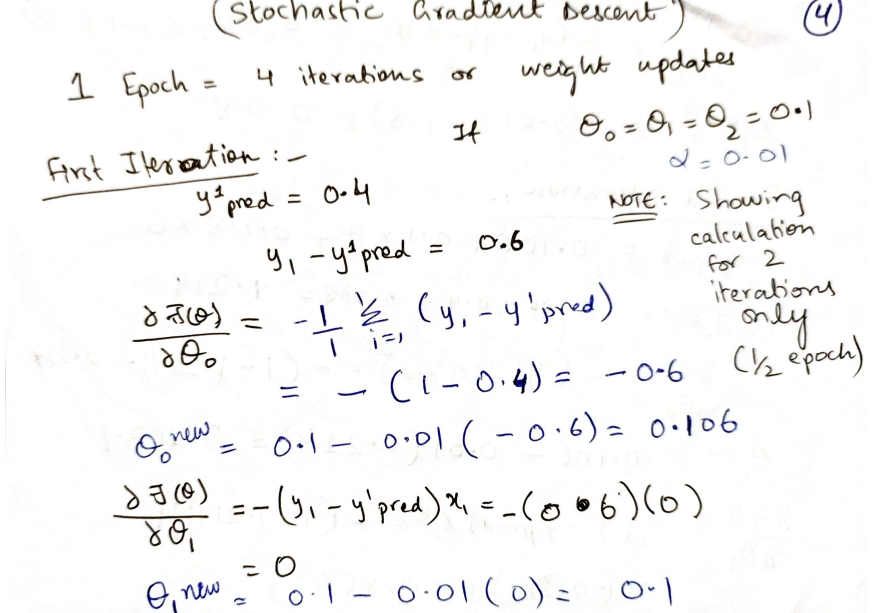 (Stochastic Gradient Descent) (4)
1 Epoch = 4 iterations or weight updates
If θ₀ = θ₁ = θ₂ = 0.1
α = 0.01
First Iteration :-
y¹pred = 0.4
NOTE: Showing
calculation
for 2
iterations
only
(1/2 epoch)
y₁ - y¹pred = 0.6
∂J(θ)/∂θ₀ = -1/1 Σ¹ᵢ₌₁ (y₁ - y'pred)
= - (1 - 0.4) = -0.6
θ₀ new = 0.1 - 0.01 ( - 0.6) = 0.106
∂J(θ)/∂θ₁ = - (y₁ - y'pred) x₁ = - (0.6) (0)
= 0
θ₁ new = 0.1 - 0.01 (0) = 0.1